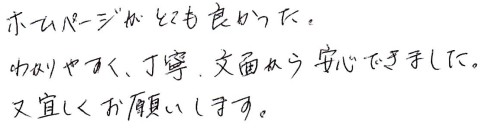 ホームページがとても良かった。
わかりやすく、丁寧、文面から安心できました。
又宜しくお願いします。